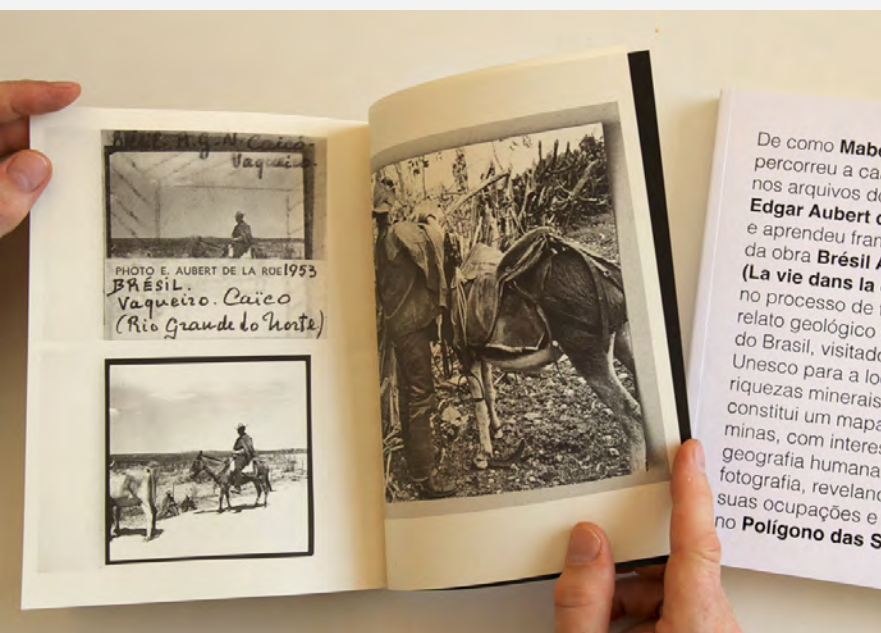 M.G.N. Caicó.
Vaqueiro.
PHOTO E. AUBERT DE LA RÜE 1953
BRÉSIL.
Vaqueiro. Caïco
(Rio Grande do Norte)
De como
percorreu a
nos arquivos
Edgar Aubert
e aprendeu
da obra Brésil
(La vie dans la
no processo de
relato geológico
do Brasil, visitado
Unesco para a
riquezas minerais
constitui um mapa
minas, com
geografia humana
fotografia,
suas ocupações e
no Polígono das